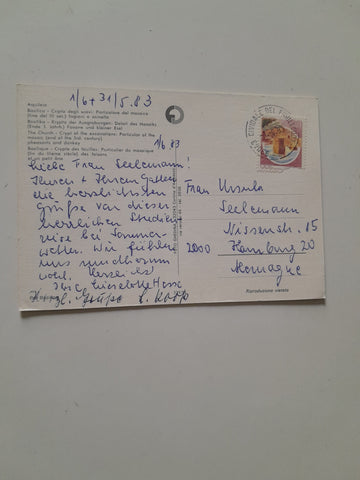 1/6+31/5.83
Aquileia
Basilica - Cripta degli scavi: Particolare del mosaico
(fine del III sec.) fagiani e asinello
Basilika - Krypta der Ausgrabungen: Detail des Mosaiks
(Ende 3. Jahrh.) Fasane und kleiner Esel
The Church - Crypt of the excavations: Particular of the
mosaic (end of the 3rd. century)
pheasants and donkey
Basilique - Crypte des fouilles: Particulier du mosaïque
(fin du IIIème siècle) des faisans
et un petit âne
1/6 83
CIVIDALE DEL
Liebe Frau Seelemann!
Ihnen + Ihrem Gatten
die herzlichsten
Grüße von dieser
herrlichen Studien-
reise bei Sommer-
wetter. Wir fühlen
uns rundherum
wohl. Herzlichst
Ihre Lieselotte
hzl. Grüße
Frau Ursula
Seelemann
Nissenstr. 15
2000 Hamburg 20
Alemagne
Riproduzione vietata